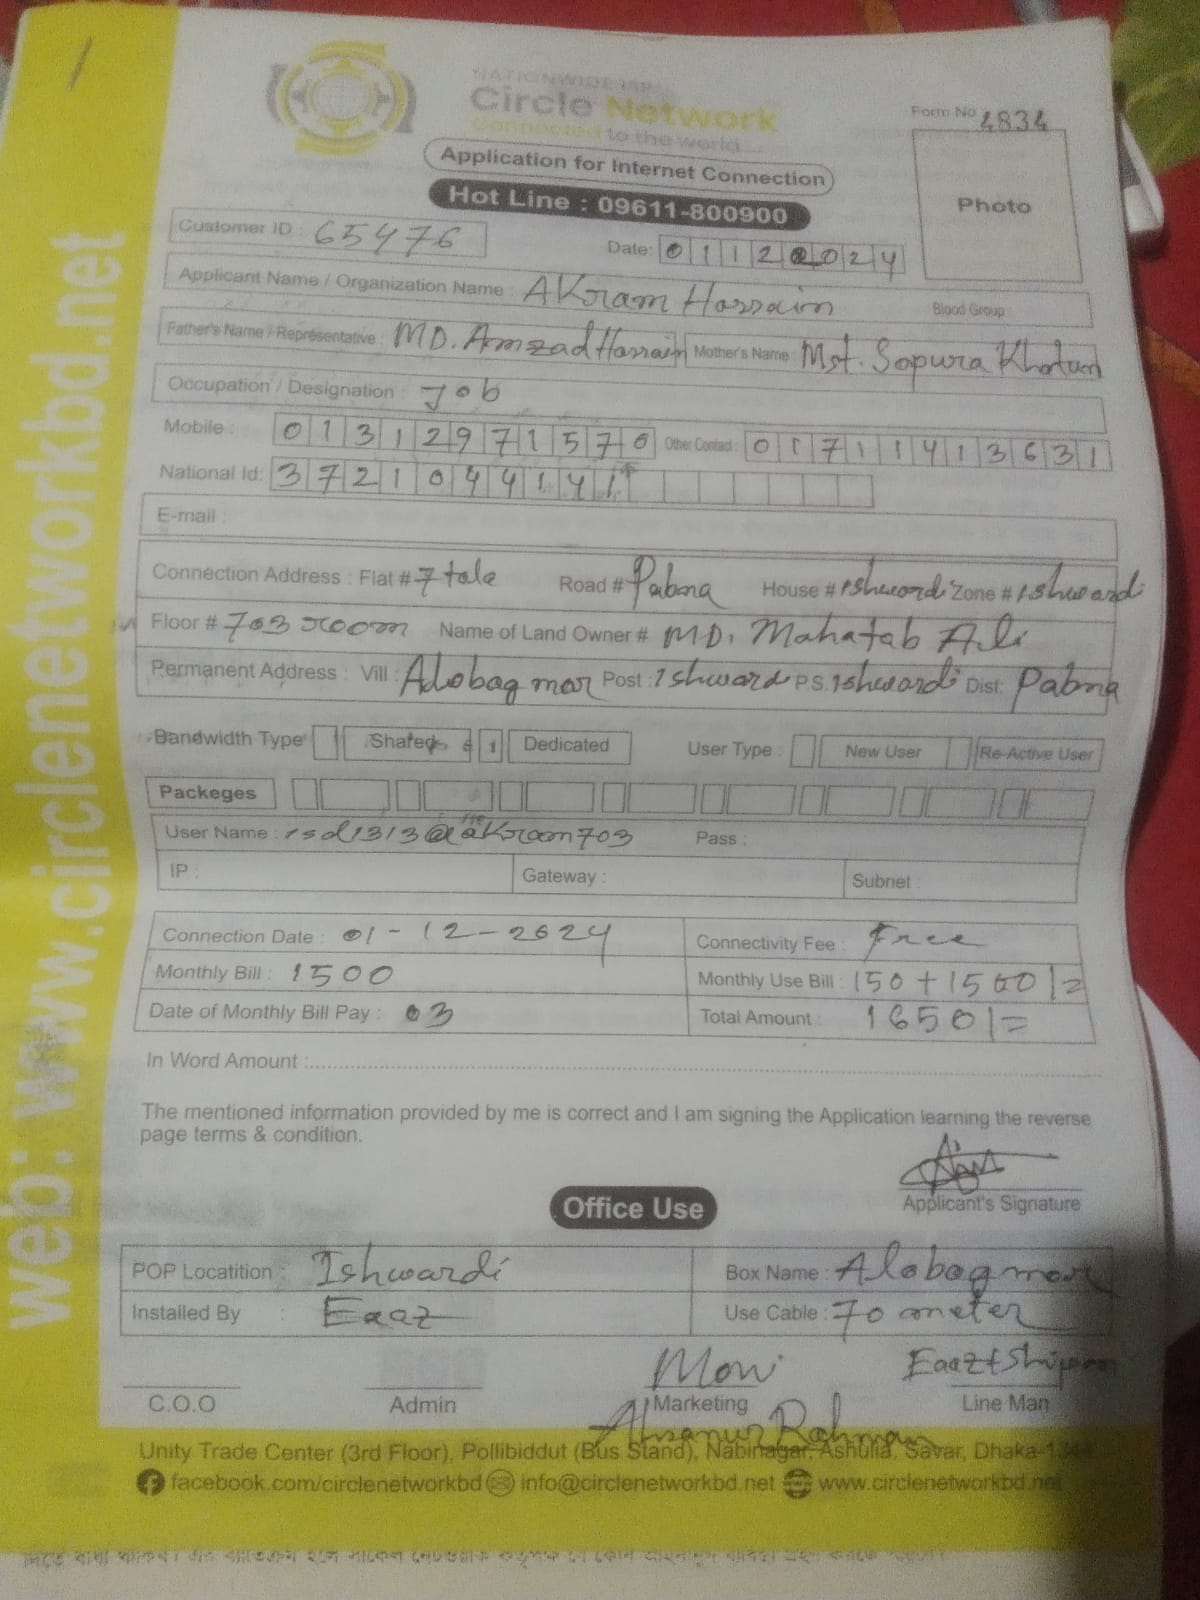 NATIONWIDE ISP
Circle Network
Connected to the world
Form No 4834
Application for Internet Connection
Hot Line : 09611-800900
Photo
Customer ID : 65476
Date: 01122024
Applicant Name / Organization Name : AKram Hossain Blood Group
Father's Name / Representative : MD. Amzad Hossain Mother's Name : Mst. Sopura Khatun
Occupation / Designation : Job
Mobile : 01312971570 Other Contact : 01711141363 1
National Id: 3721044141
E-mail :
Connection Address : Flat # 7 tala Road # Pabna House # Ishwardi Zone # Ishwardi
Floor # 703 room Name of Land Owner # MD. Mahatab Ali
Permanent Address : Vill : Alobag mor Post : Ishwardi P.S. Ishwardi Dist: Pabna
Bandwidth Type Shared Dedicated User Type : New User Re-Active User
Packeges
User Name : isd1313@akram703 Pass :
IP : Gateway : Subnet :
Connection Date : 01-12-2024 Connectivity Fee : Free
Monthly Bill : 1500 Monthly Use Bill : 150 + 1500/=
Date of Monthly Bill Pay : 03 Total Amount : 1650/=
In Word Amount :
The mentioned information provided by me is correct and I am signing the Application learning the reverse
page terms & condition.
Applicant's Signature
Office Use
POP Locatition : Ishwardi Box Name : Alobag mor
Installed By : Eaaz Use Cable : 70 meter
Moni Eaaz+Shipon
C.O.O Admin Marketing Line Man
Ahsanur Rahman
Unity Trade Center (3rd Floor), Pollibiddut (Bus Stand), Nabinagar, Ashulia, Savar, Dhaka
facebook.com/circlenetworkbd info@circlenetworkbd.net www.circlenetworkbd.net
web: www.circlenetworkbd.net